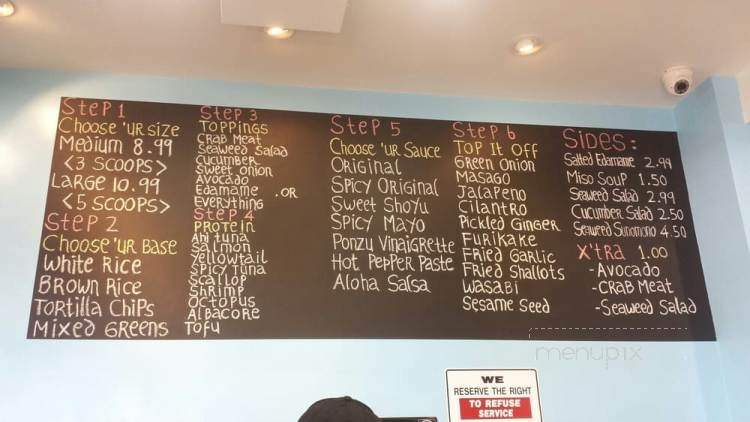 Step 1
Choose 'ur size
Medium 8.99
<3 Scoops>
Large 10.99
<5 Scoops>
Step 2
Choose 'ur Base
White Rice
Brown Rice
Tortilla Chips
Mixed Greens
Step 3
Toppings
Crab Meat
Seaweed Salad
Cucumber
Sweet Onion
Avocado
Edamame .or
Everything
Step 4
Protein
Ahi Tuna
Salmon
Yellowtail
Spicy Tuna
Scallop
Shrimp
Octopus
Albacore
Tofu
Step 5
Choose 'ur Sauce
Original
Spicy Original
Sweet Shoyu
Spicy Mayo
Ponzu Vinaigrette
Hot Pepper Paste
Aloha Salsa
Step 6
Top It Off
Green Onion
Masago
Jalapeno
Cilantro
Pickled Ginger
Furikake
Fried Garlic
Fried Shallots
Wasabi
Sesame Seed
Sides:
Salted Edamame 2.99
Miso Soup 1.50
Seaweed Salad 2.99
Cucumber Salad 2.50
Seaweed Sunomono 4.50
X'tra 1.00
-Avocado
-Crab Meat
-Seaweed Salad
menupix
WE
RESERVE THE RIGHT
TO REFUSE
SERVICE